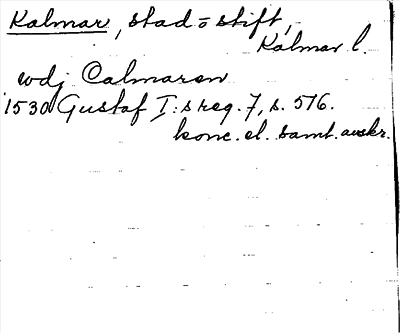 Kalmar, stad o stift,
Kalmar l.
wdj Calmaren
1530 Gustaf I:s reg. 7, s. 576.
konc. el. samt. avskr.